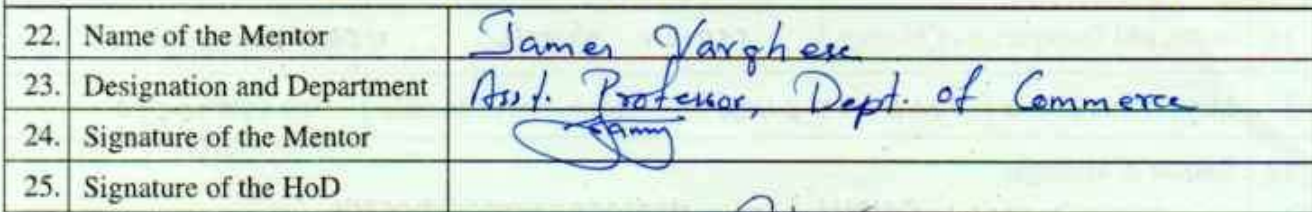 22. Name of the Mentor James Varghese
23. Designation and Department Asst. Professor, Dept. of Commerce
24. Signature of the Mentor
25. Signature of the HoD